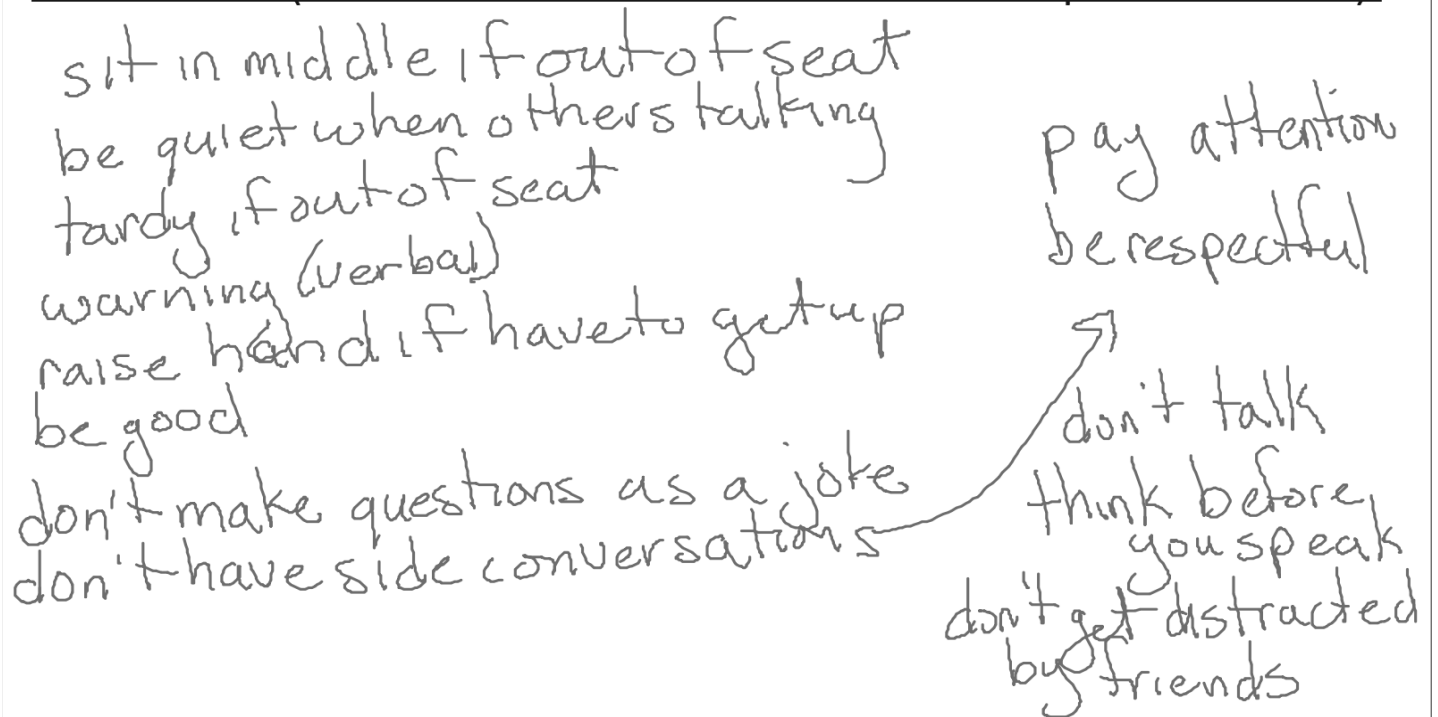 sit in middle if out of seat
be quiet when others talking
tardy if out of seat
warning (verbal)
raise hand if have to get up
be good
don't make questions as a joke
don't have side conversations
pay attention
be respectful
don't talk
think before
you speak
don't get distracted
by friends